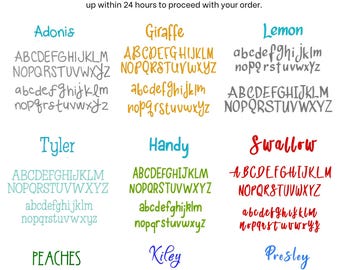 up within 24 hours to proceed with your order.
Adonis
ABCDEFGHIJKLM
NOPQRSTUVWXYZ
abcdefghijklm
nopqrstuvwxyz
Giraffe
ABCDEFGHIJKLM
NOPQRSTUVWXYZ
abcdefghijklm
nopqrstuvwxyz
Lemon
abcdefghijklm
nopqrstuvwxyz
ABCDEFGHIJKLM
NOPQRSTUVWXYZ
Tyler
ABCDEFGHIJKLM
NOPQRSTUVWXYZ
abcdefghijklm
nopqrstuvwxyz
Handy
ABCDEFGHIJKLM
NOPQRSTUVWXYZ
abcdefghijklm
nopqrstuvwxyz
Swallow
ABCDEFGHIJKLM
NOPQRSTUVWXYZ
abcdefghijklm
nopqrstuvwxyz
PEACHES
Kiley
Presley